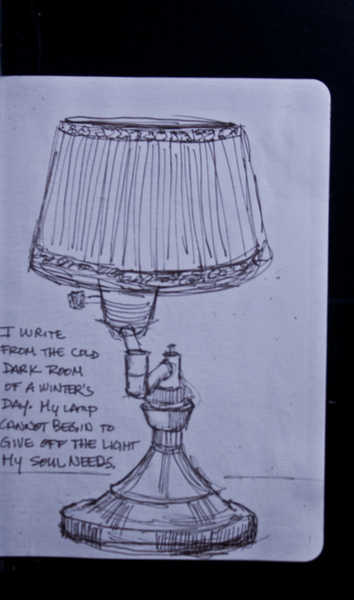 I WRITE
FROM THE COLD
DARK ROOM
OF A WINTER'S
DAY. MY LAMP
CANNOT BEGIN TO
GIVE OFF THE LIGHT
MY SOUL NEEDS.